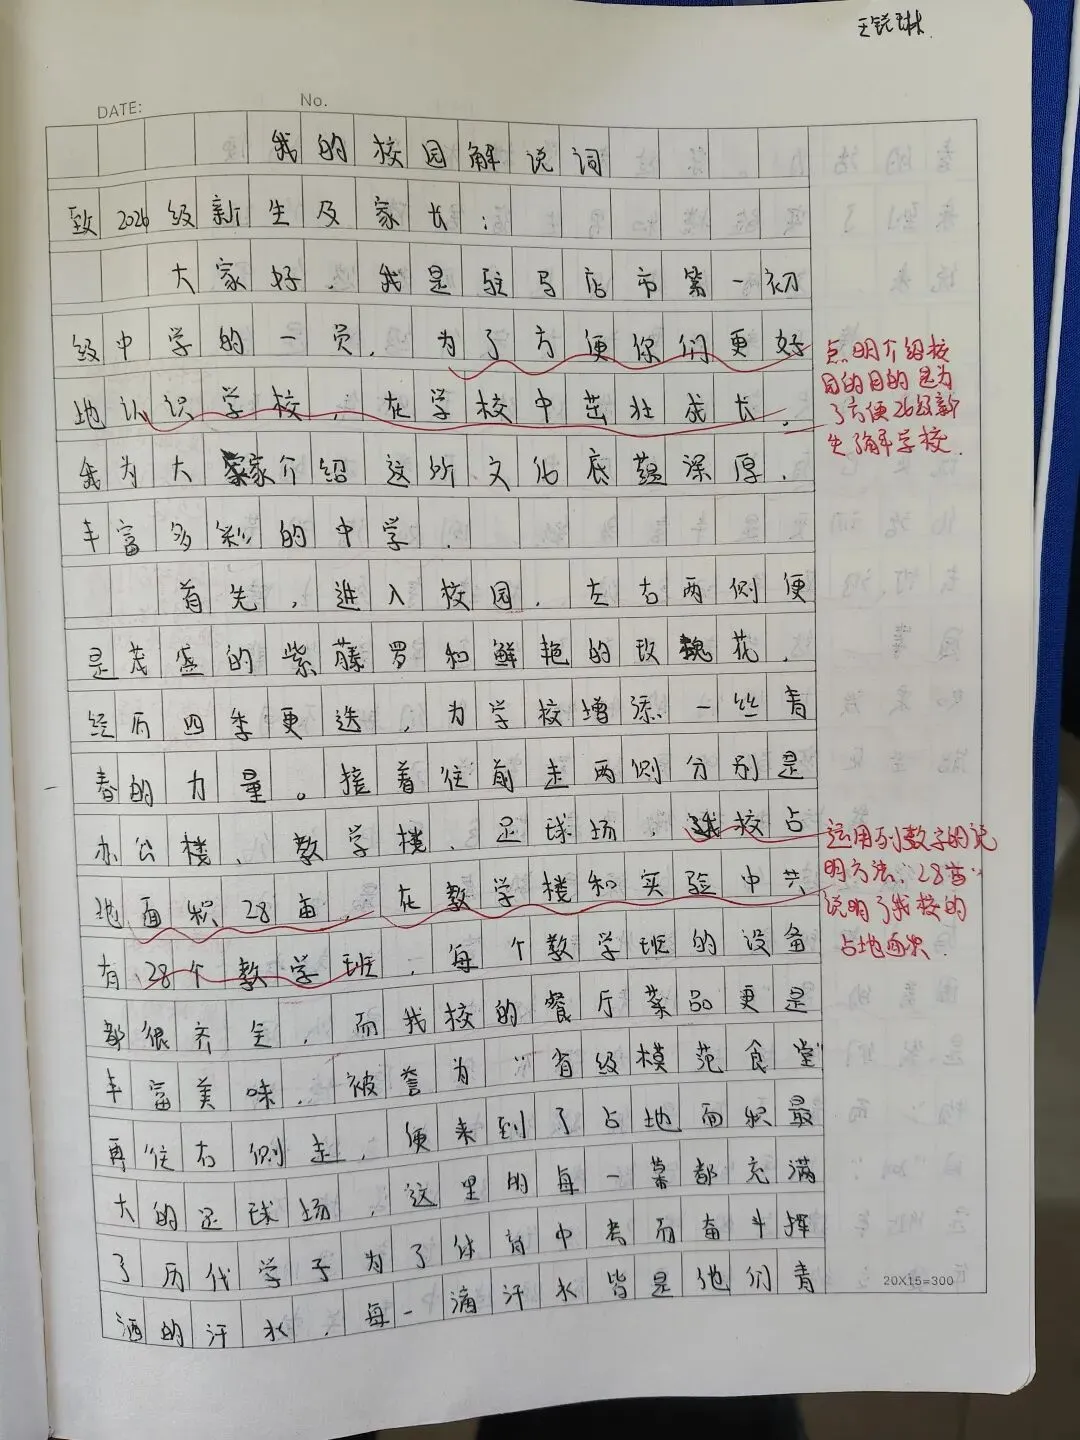 王锐琳
DATE:
No.
我的校园解说词
致2026级新生及家长：
大家好，我是驻马店市第一初
级中学的一员，为了方便你们更好
地认识学校，在学校中茁壮成长，
我为大家介绍这所文化底蕴深厚，
丰富多彩的中学．
首先，进入校园，左右两侧便
是茂盛的紫藤罗和鲜艳的玫瑰花，
经历四季更迭，为学校增添一丝青
春的力量。接着往前走两侧分别是
办公楼、教学楼、足球场，我校占
地面积28亩，在教学楼和实验中共
有28个教学班，每个教学班的设备
都很齐全，而我校的餐厅菜品更是
丰富美味，被誉为“省级模范食堂”
再往右侧走，便来到了占地面积最
大的足球场，这里的每一幕都充满
了历代学子为了体育中考而奋斗挥
洒的汗水，每一滴汗水皆是他们青
点明介绍校
园的目的是为
了方便26级新
生了解学校．
运用列数字的说
明方法，“28亩”
说明了我校的
占地面积．
20X15=300